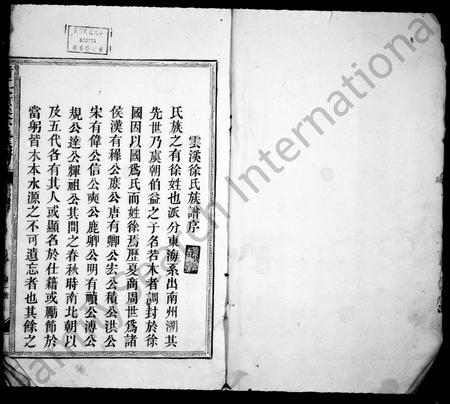 雲溪徐氏族譜序
氏族之有徐姓也派分東海系出南州溯其
先世乃虞朝伯益之子名若木者調封於徐
國因以國爲氏而姓徐焉歷夏商周世爲諸
侯漢有穉公庶公唐有卿公宏公積公洪公
宋有偉公信公奭公鹿卿公明有禎公溥公
規公達公輝祖公其間之春秋時南北朝以
及五代各有其人或顯名於仕籍或勵節於
當躬皆木本水源之不可遺忘者也其餘之
FamilySearch International